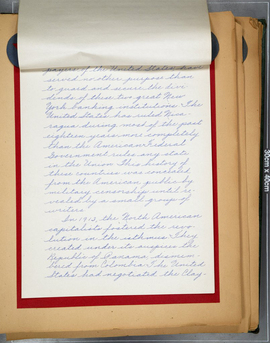 payers of the United States have
served no other purpose than
to guard and secure the divi-
dends of these two great New
York banking institutions. The
United States has ruled Nica-
ragua during most of the past
eighteen years more completely
than the American Federal
Government rules any state
in the Union. This history of
these countries was concealed
from the American public by
military censorship until re-
vealed by a small group of
writers.
In 1903, the North American
capitalists fostered the revo-
lution in the isthmus. They
created under its auspices the
Republic of Panama, dismem-
bered from Colombia. The United
States had negotiated the Clay-
30cm x 40cm